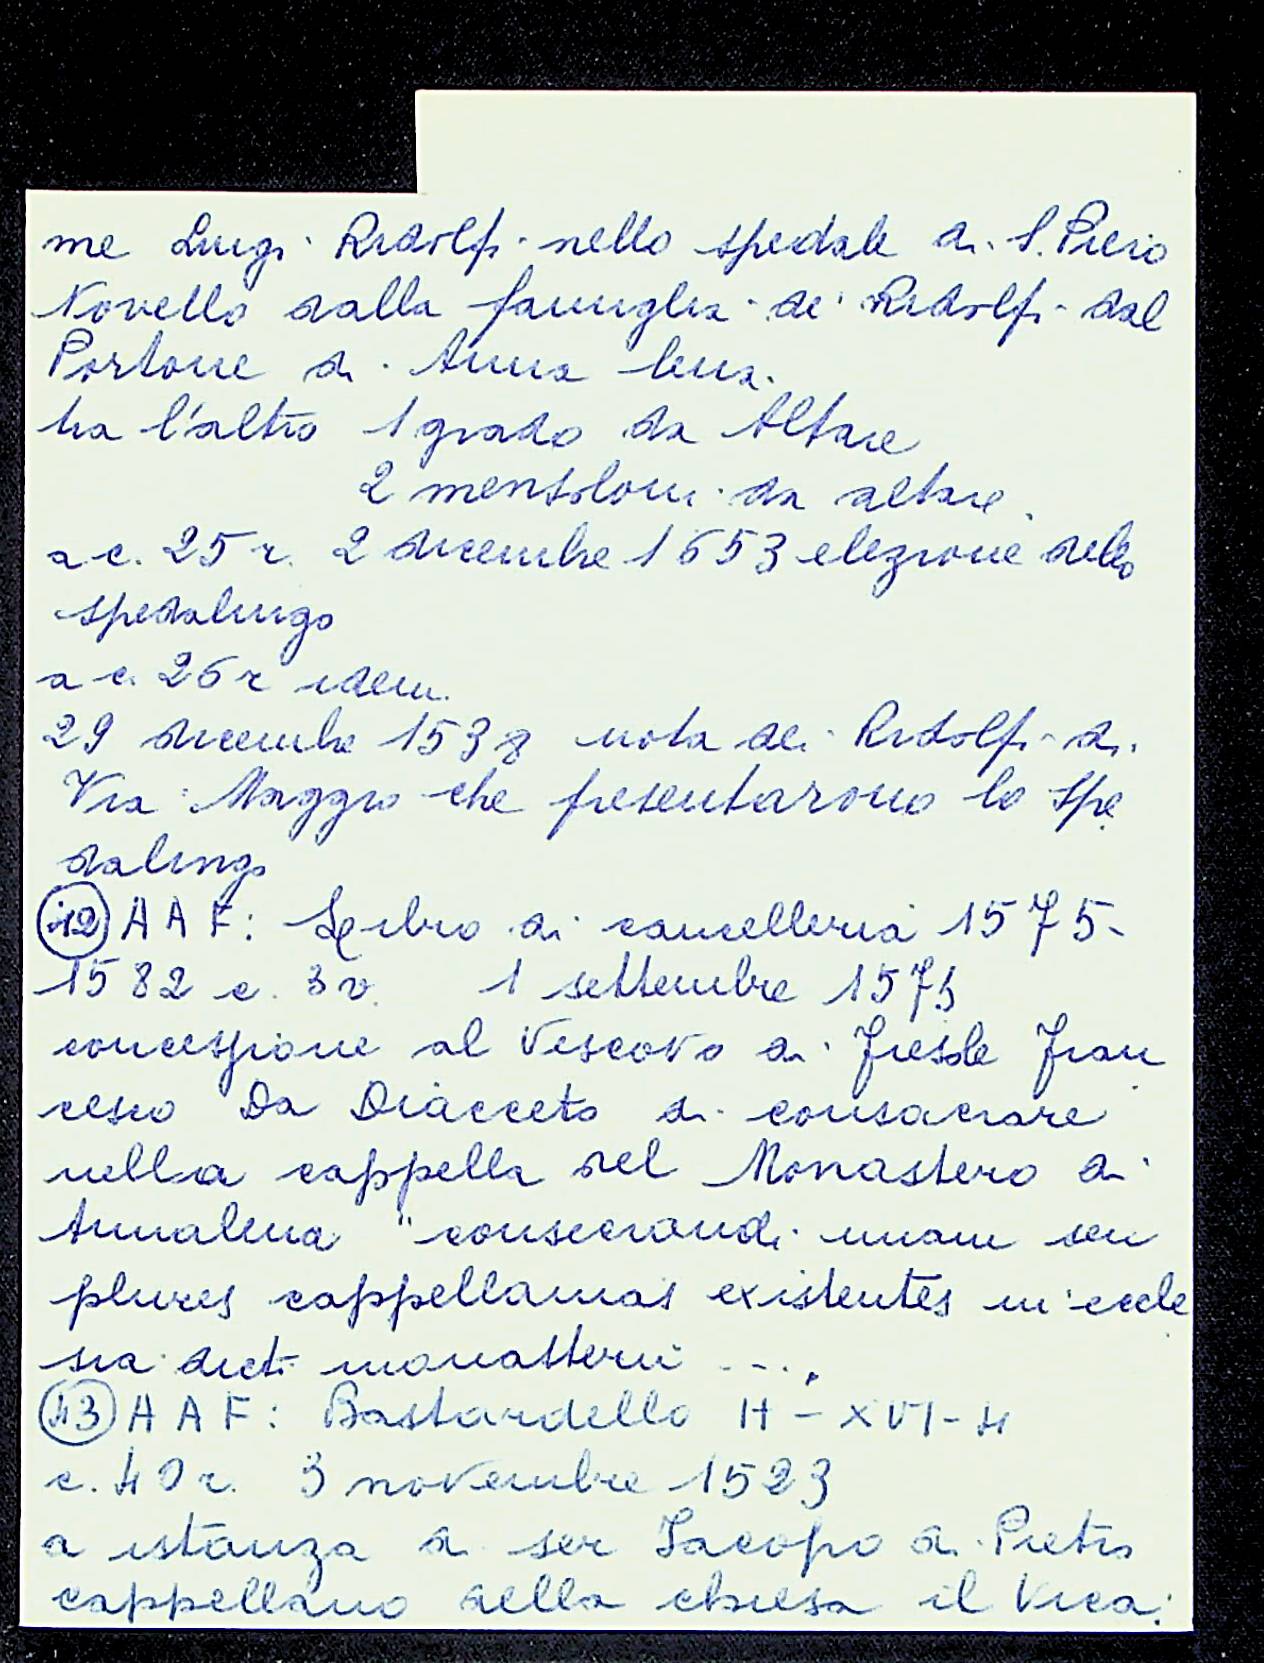 me Luigi Ridolfi nello spedale di S. Piero
Novello dalla famiglia de' Ridolfi dal
Portone di Anna lena.
tra l'altro 1 grado da Altare
2 mensoloni da altare.
a c. 25 r. 2 dicembre 1653 elezione dello
spedalingo
a c. 26 r idem.
29 dicembre 1538 nota dei Ridolfi di
Via Maggio che presentarono lo spe
dalingo
42 AAF: Libro di cancelleria 1575-
1582 c. 3 v. 1 settembre 1575
concessione al Vescovo di Fiesole Fran
cesco Da Diacceto di consacrare
nella cappella del Monastero di
Annalena "consecrandi unam seu
plures cappellamas existentes in eccle
sia dicti monasterii ....
43 AAF: Bastardello H - XVI - 4
c. 40 r. 3 novembre 1523
a istanza di ser Jacopo di Pietro
cappellano della chiesa il Vica: